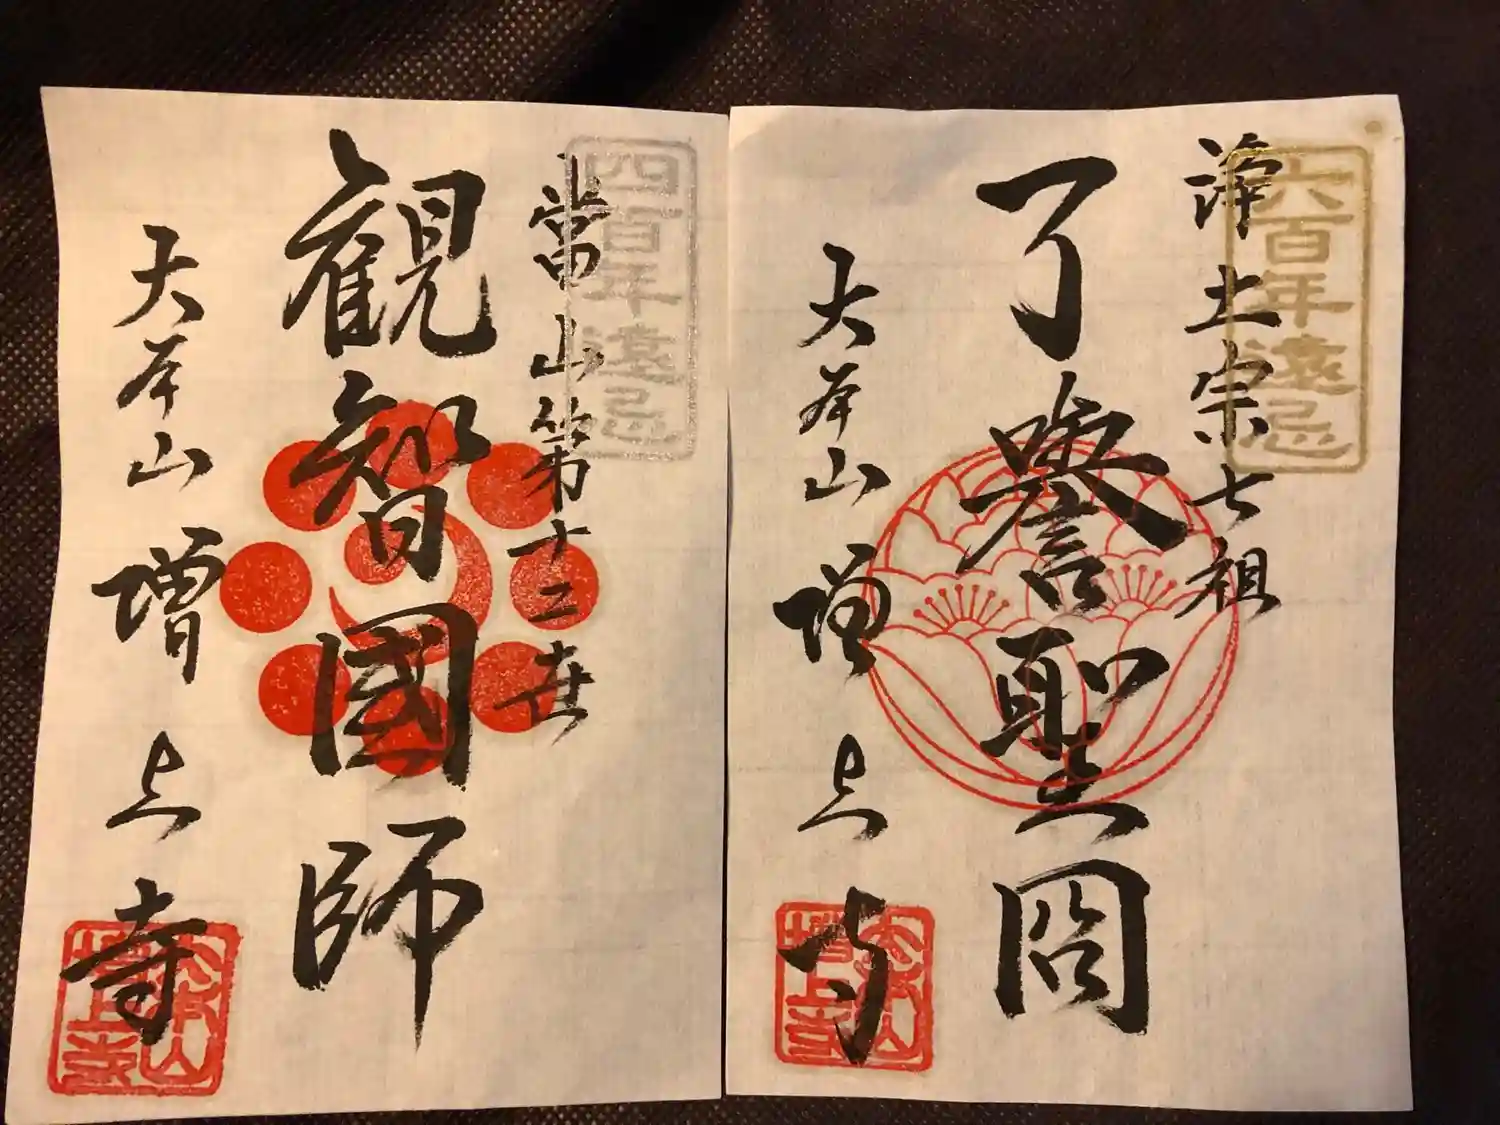 六百年遠忌
浄土宗七祖
了譽聖冏
大本山増上寺
大本山増上寺
四百年遠忌
當山第十二世
観智國師
大本山増上寺
大本山増上寺